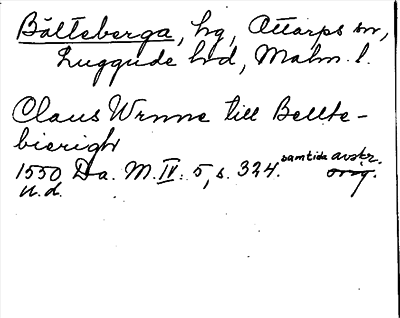 Bälteberga, hg, Ottarps sn,
Luggude hd, Malm. l.
Claus Wrnne till Bellte-
bierigh
1550 Da. M. IV: 5, s. 324. samtida avskr. orig.
u.d.